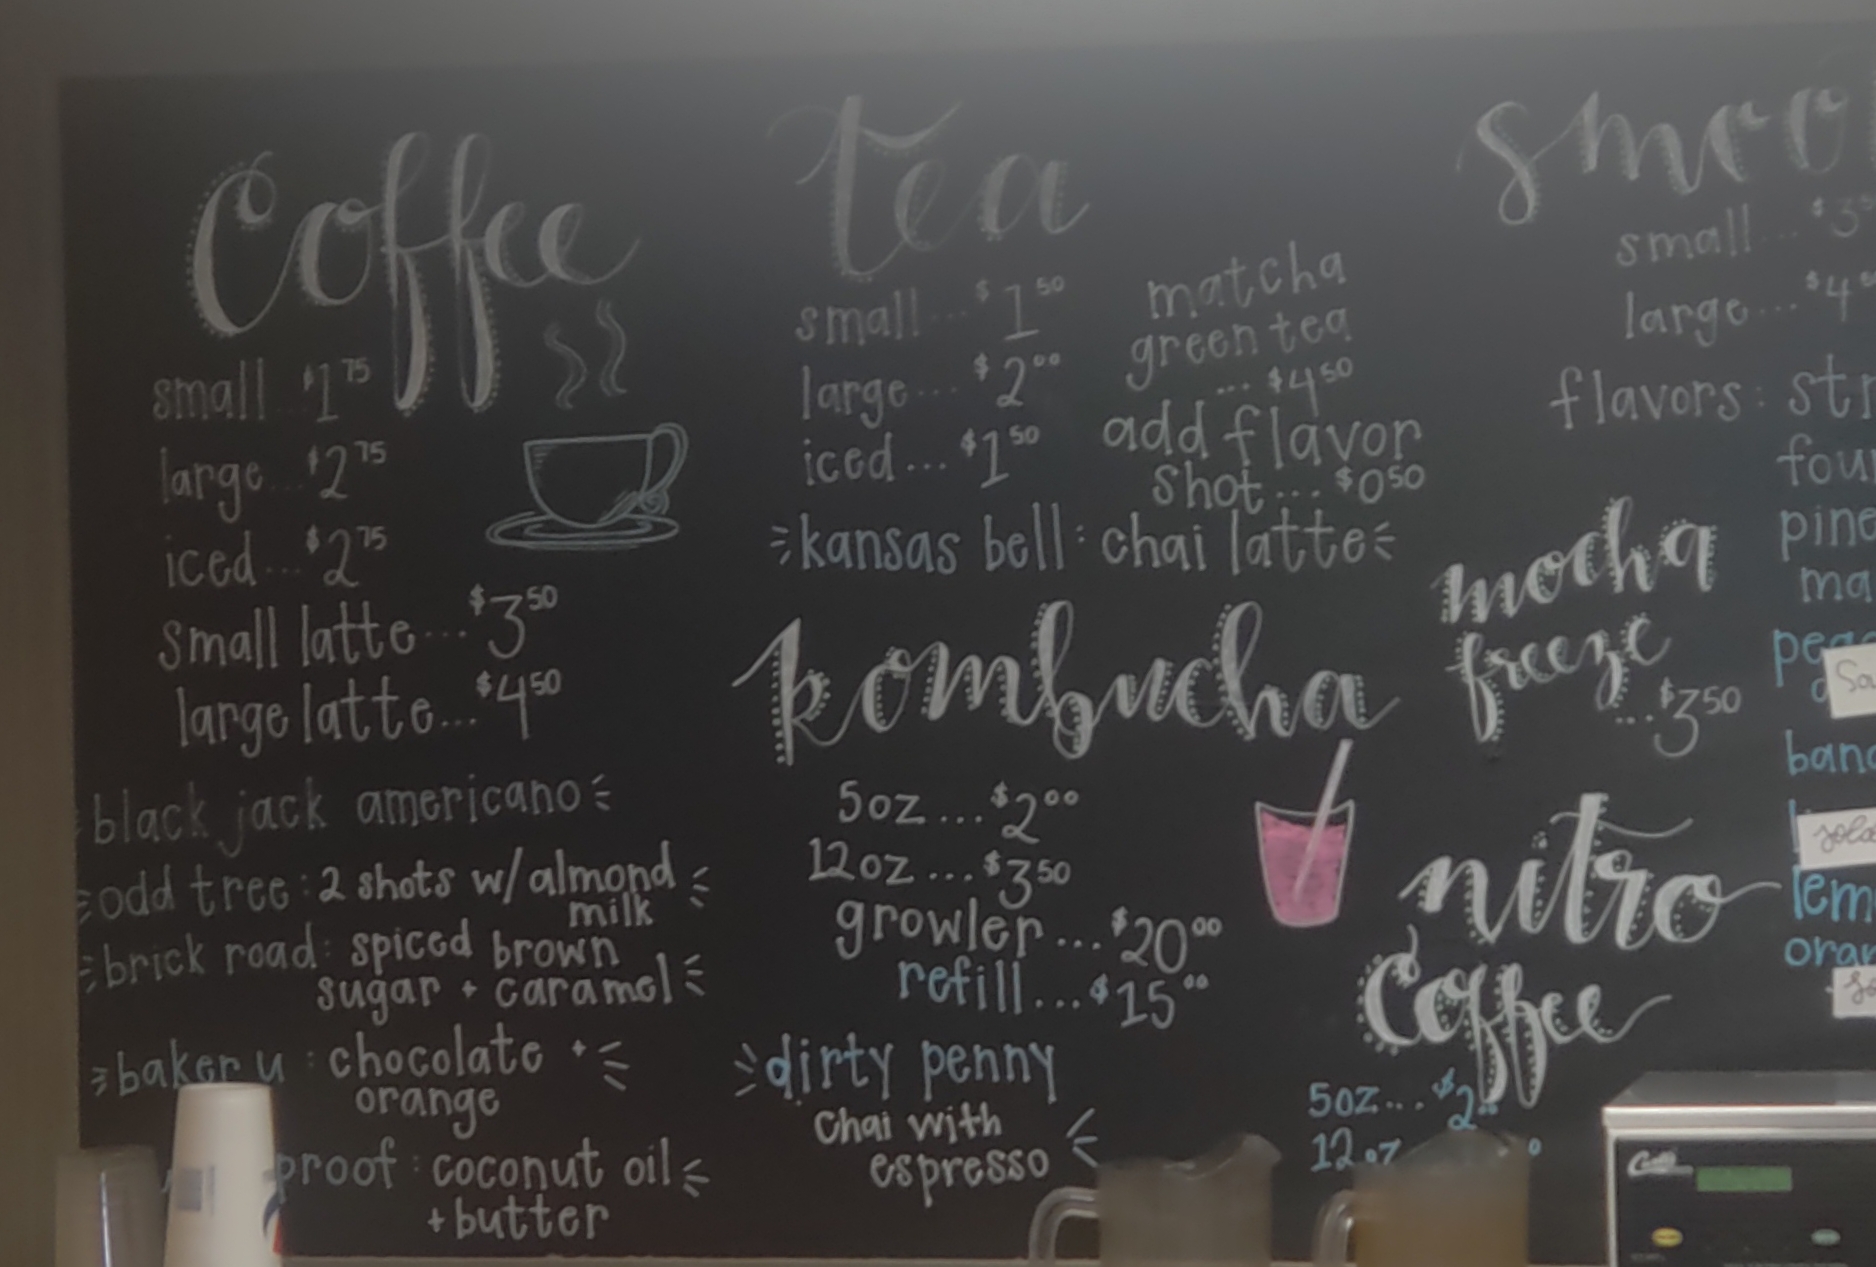 Coffee
small... $1.75
large... $2.75
iced... $2.75
small latte... $3.50
large latte... $4.50
black jack americano
odd tree: 2 shots w/ almond
milk
brick road: spiced brown
sugar + caramel
baker u: chocolate +
orange
proof: coconut oil
+ butter
tea
small... $1.50
large... $2.00
iced... $1.50
matcha
green tea
... $4.50
add flavor
shot... $0.50
kansas bell: chai latte
kombucha
5oz... $2.00
12oz... $3.50
growler... $20.00
refill... $15.00
dirty penny
chai with
espresso
smoo
small... $3
large... $4
flavors: str
four
pine
ma
pea
banc
lem
oran
mocha
freeze
... $3.50
nitro
coffee
5oz... $2
12oz